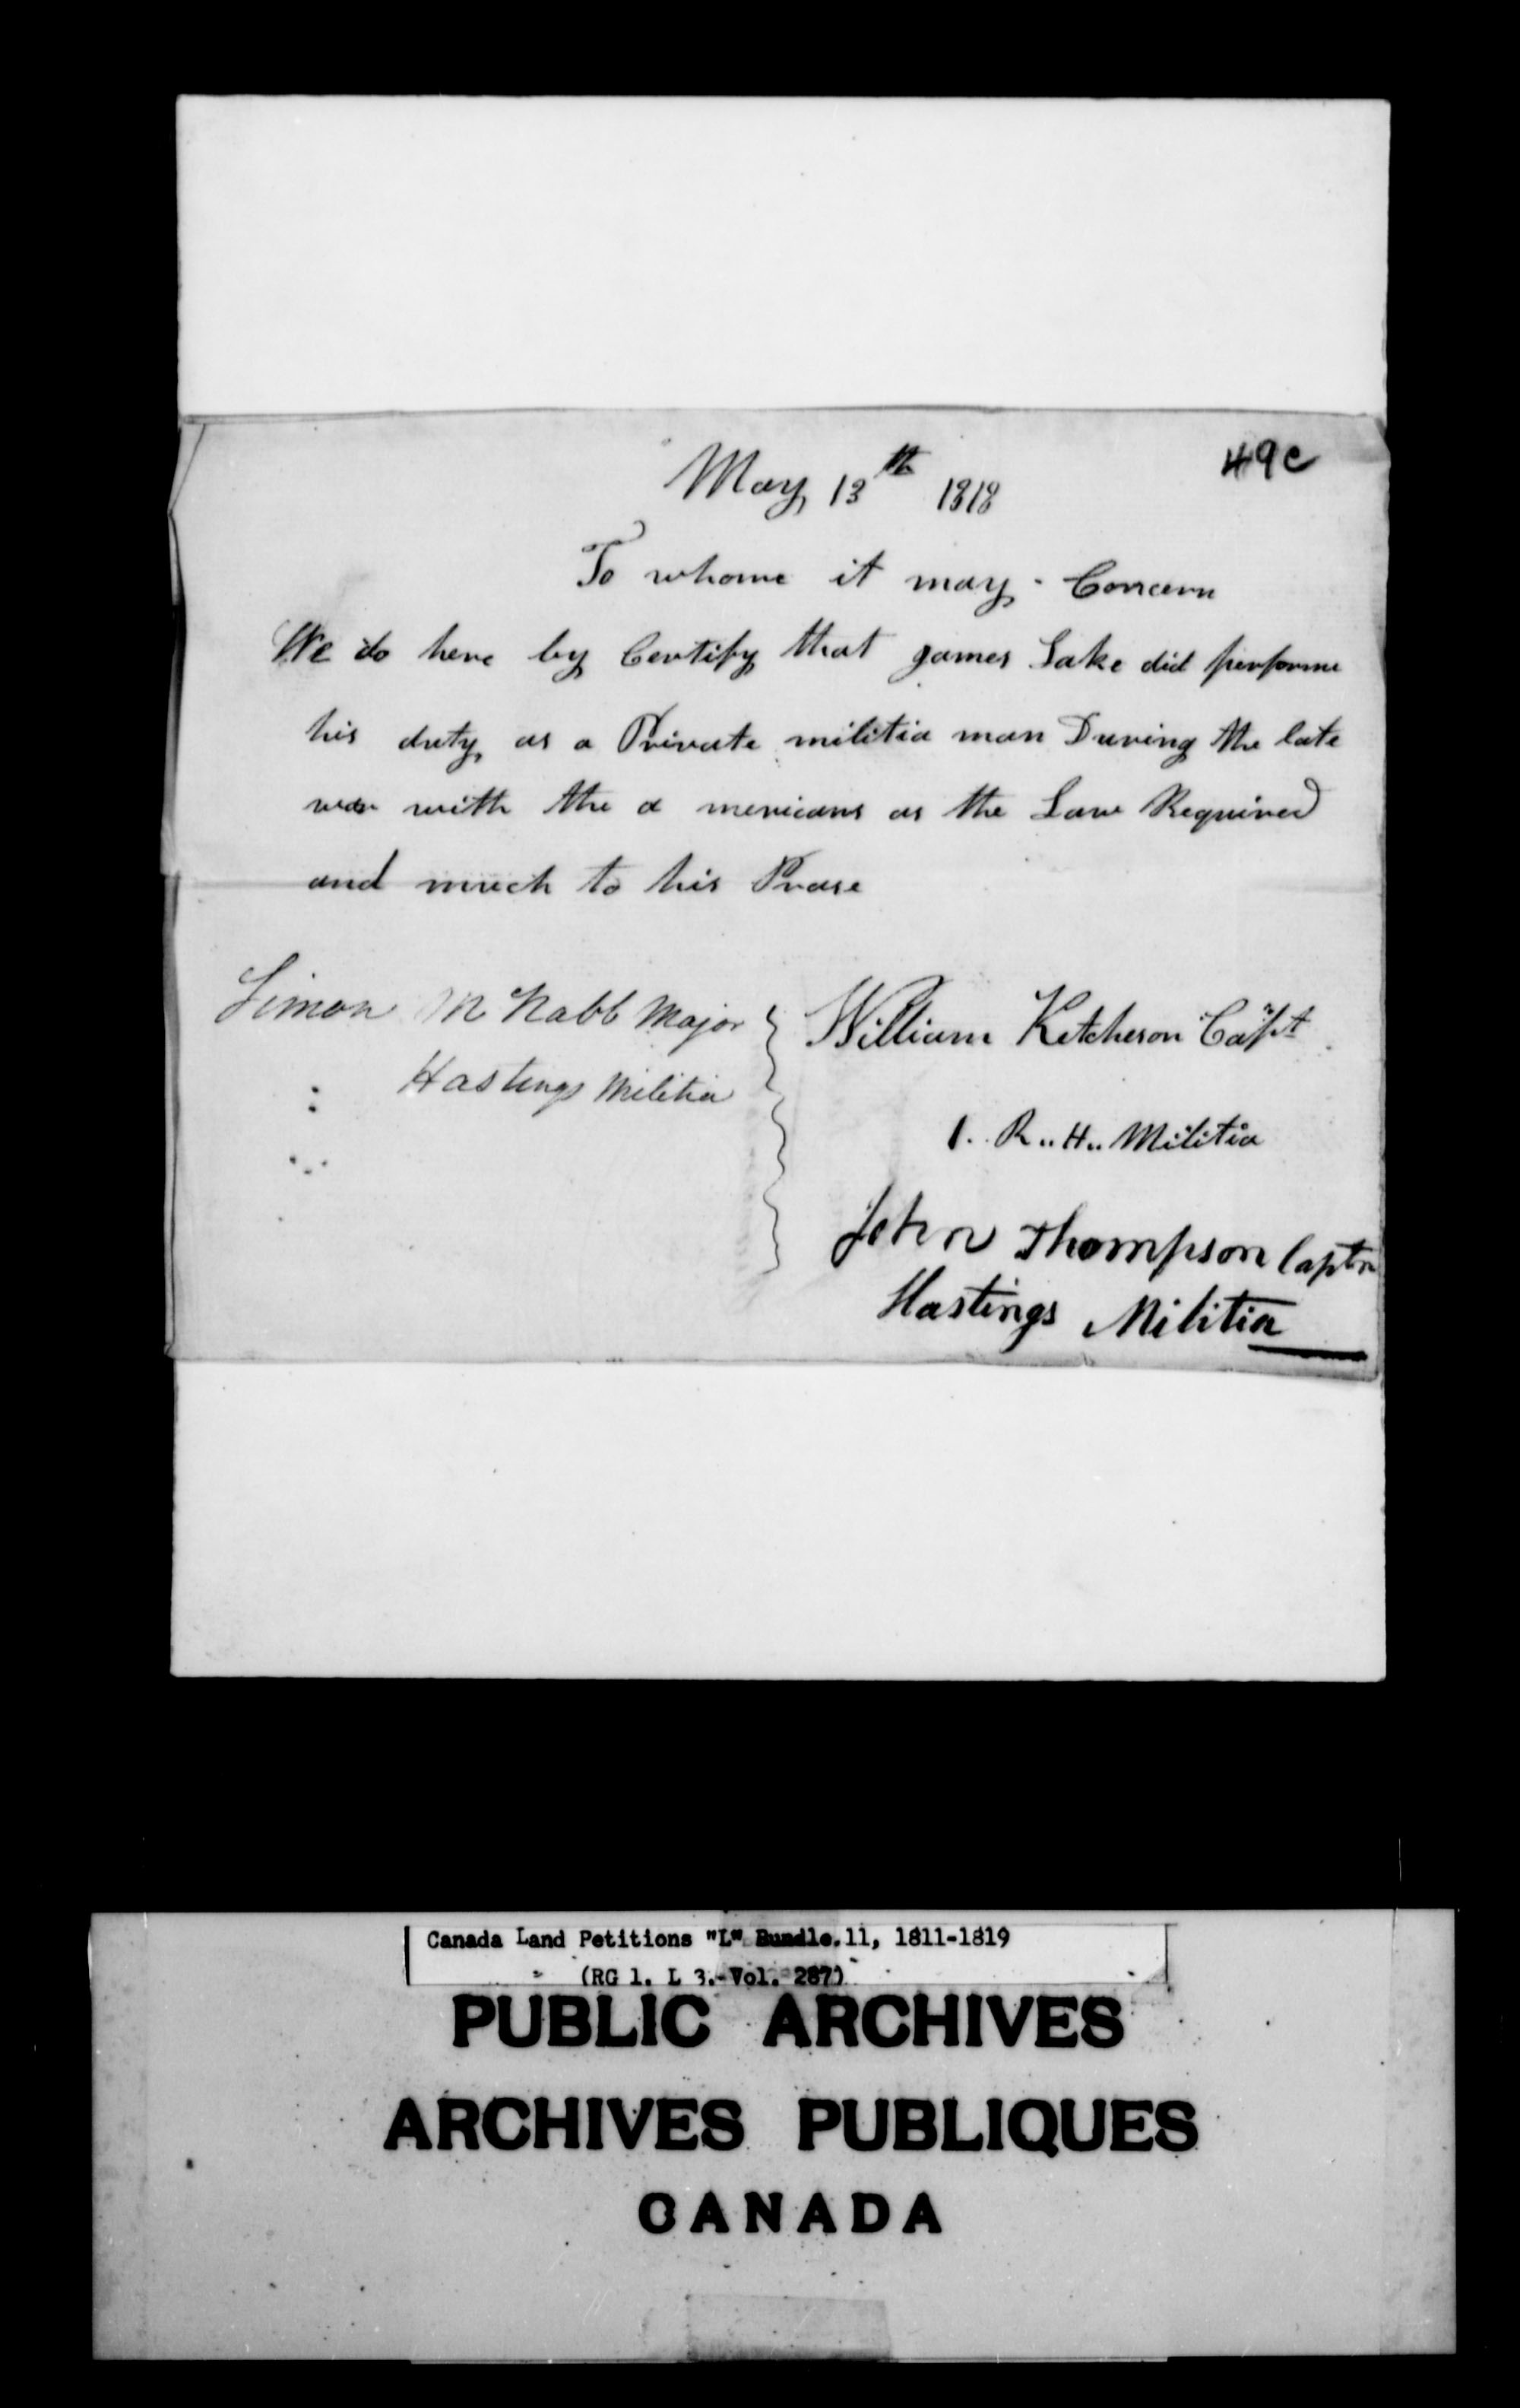 49c
May 13th 1818
To whome it may Concern
We do here by Certify that James Lake did performe
his duty as a Private militia man During the late
war with the a mericans as the Law Required
and much to his Prase
Simon Mc Nabb Major
Hastings Militia
William Ketcheson Capt
1. R.. H.. Militia
John Thompson Captn
Hastings Militia
Canada Land Petitions "L" Bundle.11, 1811-1819
(RG 1. L 3.-Vol. 287)
PUBLIC ARCHIVES
ARCHIVES PUBLIQUES
CANADA